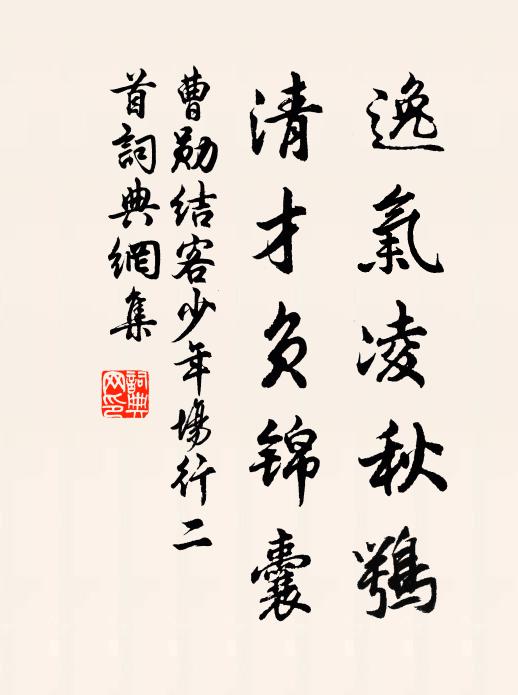 逸氣凌秋鶚
清才負錦囊
曹勛結客少年場行二
首詞典網集
詞典
网印